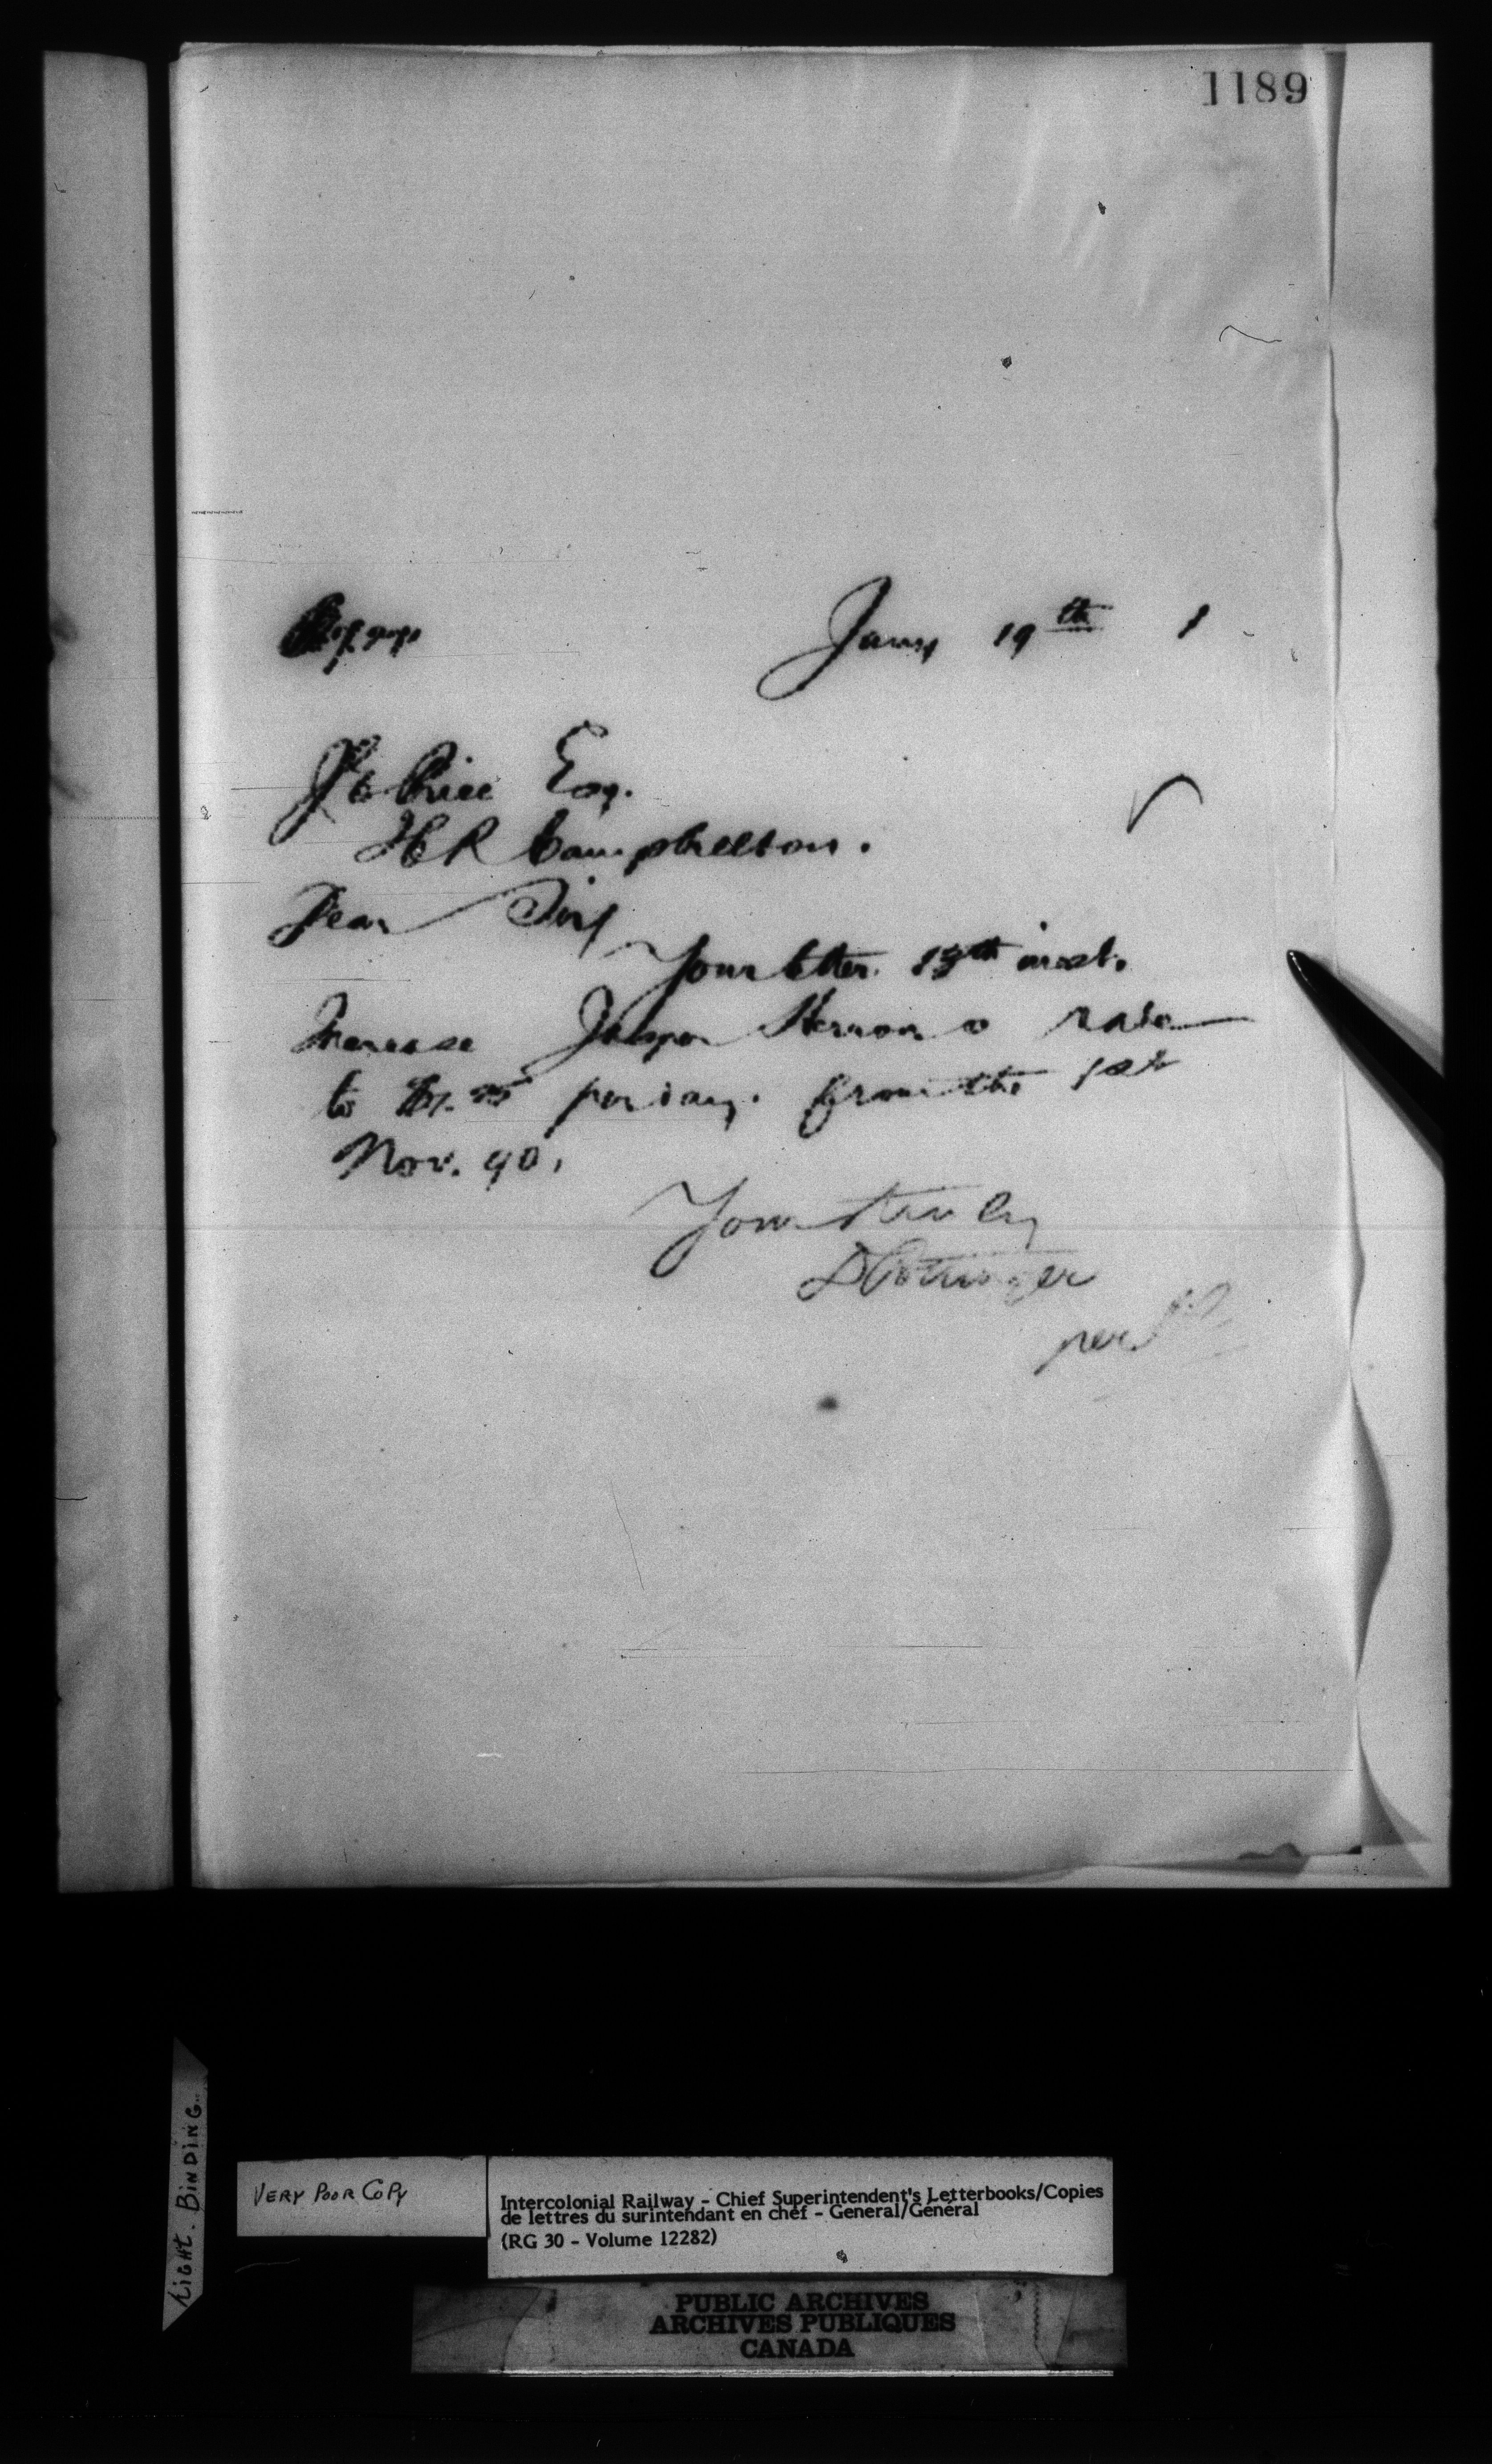 1189
Jany 19th 1
Price Esq.
Campbellton.
Dear Sir,
Your letter 13th inst.
Increase Jasper Herron's rate
to $1.25 per day. from the 1st
Nov. 90.
Yours truly
D Pottinger
per
LIGHT. BINDING.
VERY POOR COPY
Intercolonial Railway - Chief Superintendent's Letterbooks/Copies
de lettres du surintendant en chef - General/Général
(RG 30 - Volume 12282)
PUBLIC ARCHIVES
ARCHIVES PUBLIQUES
CANADA